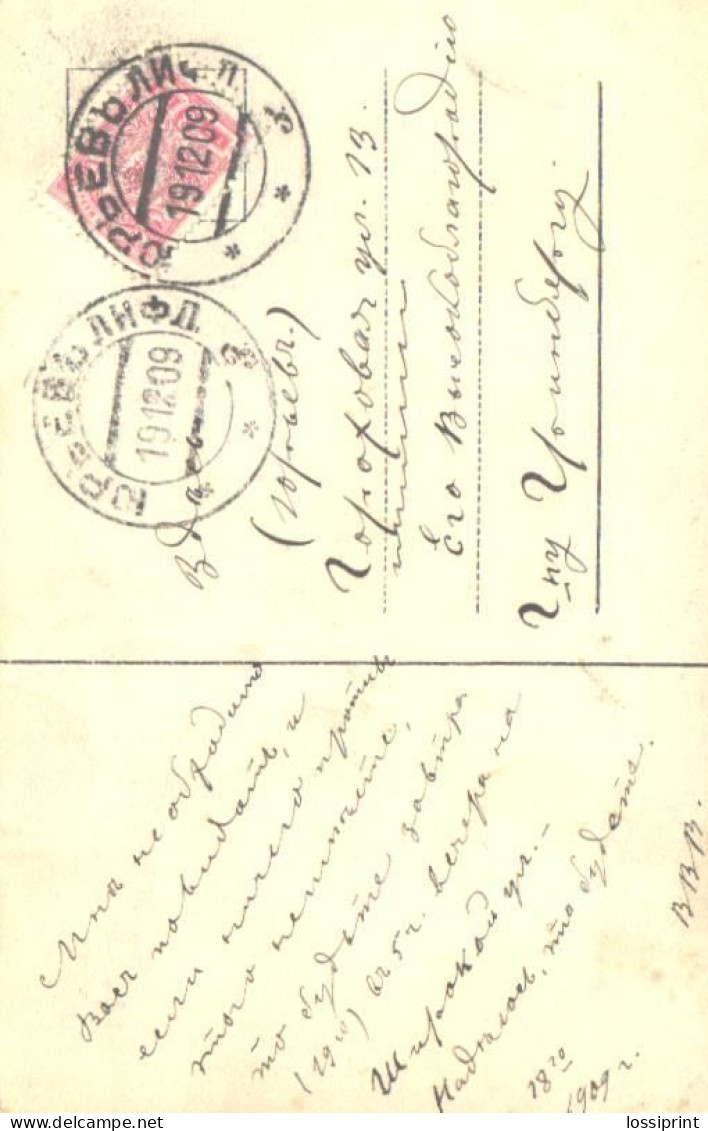 ЮРЬЕВЪ ЛИФЛ.
191209
ЮРЬЕВЪ ЛИФЛ.
191209
Здѣсь
(Юрьевъ.)
Гороховая ул. 13.
Его Высокоблагородію
Г-ну
Мнѣ необходимо
Васъ повидать, и
если ничего противъ
того не имѣете,
то будьте завтра
(19го) въ 5 ч. вечера на
Широкой ул. –
Надѣюсь, что будете.
В.В.
18го
1909 г.
lossiprint